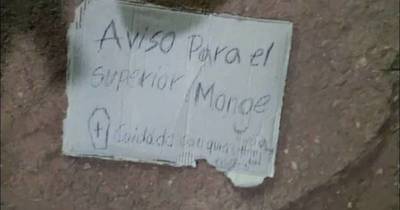 Aviso Para el
superior Monge
Cuidado con que